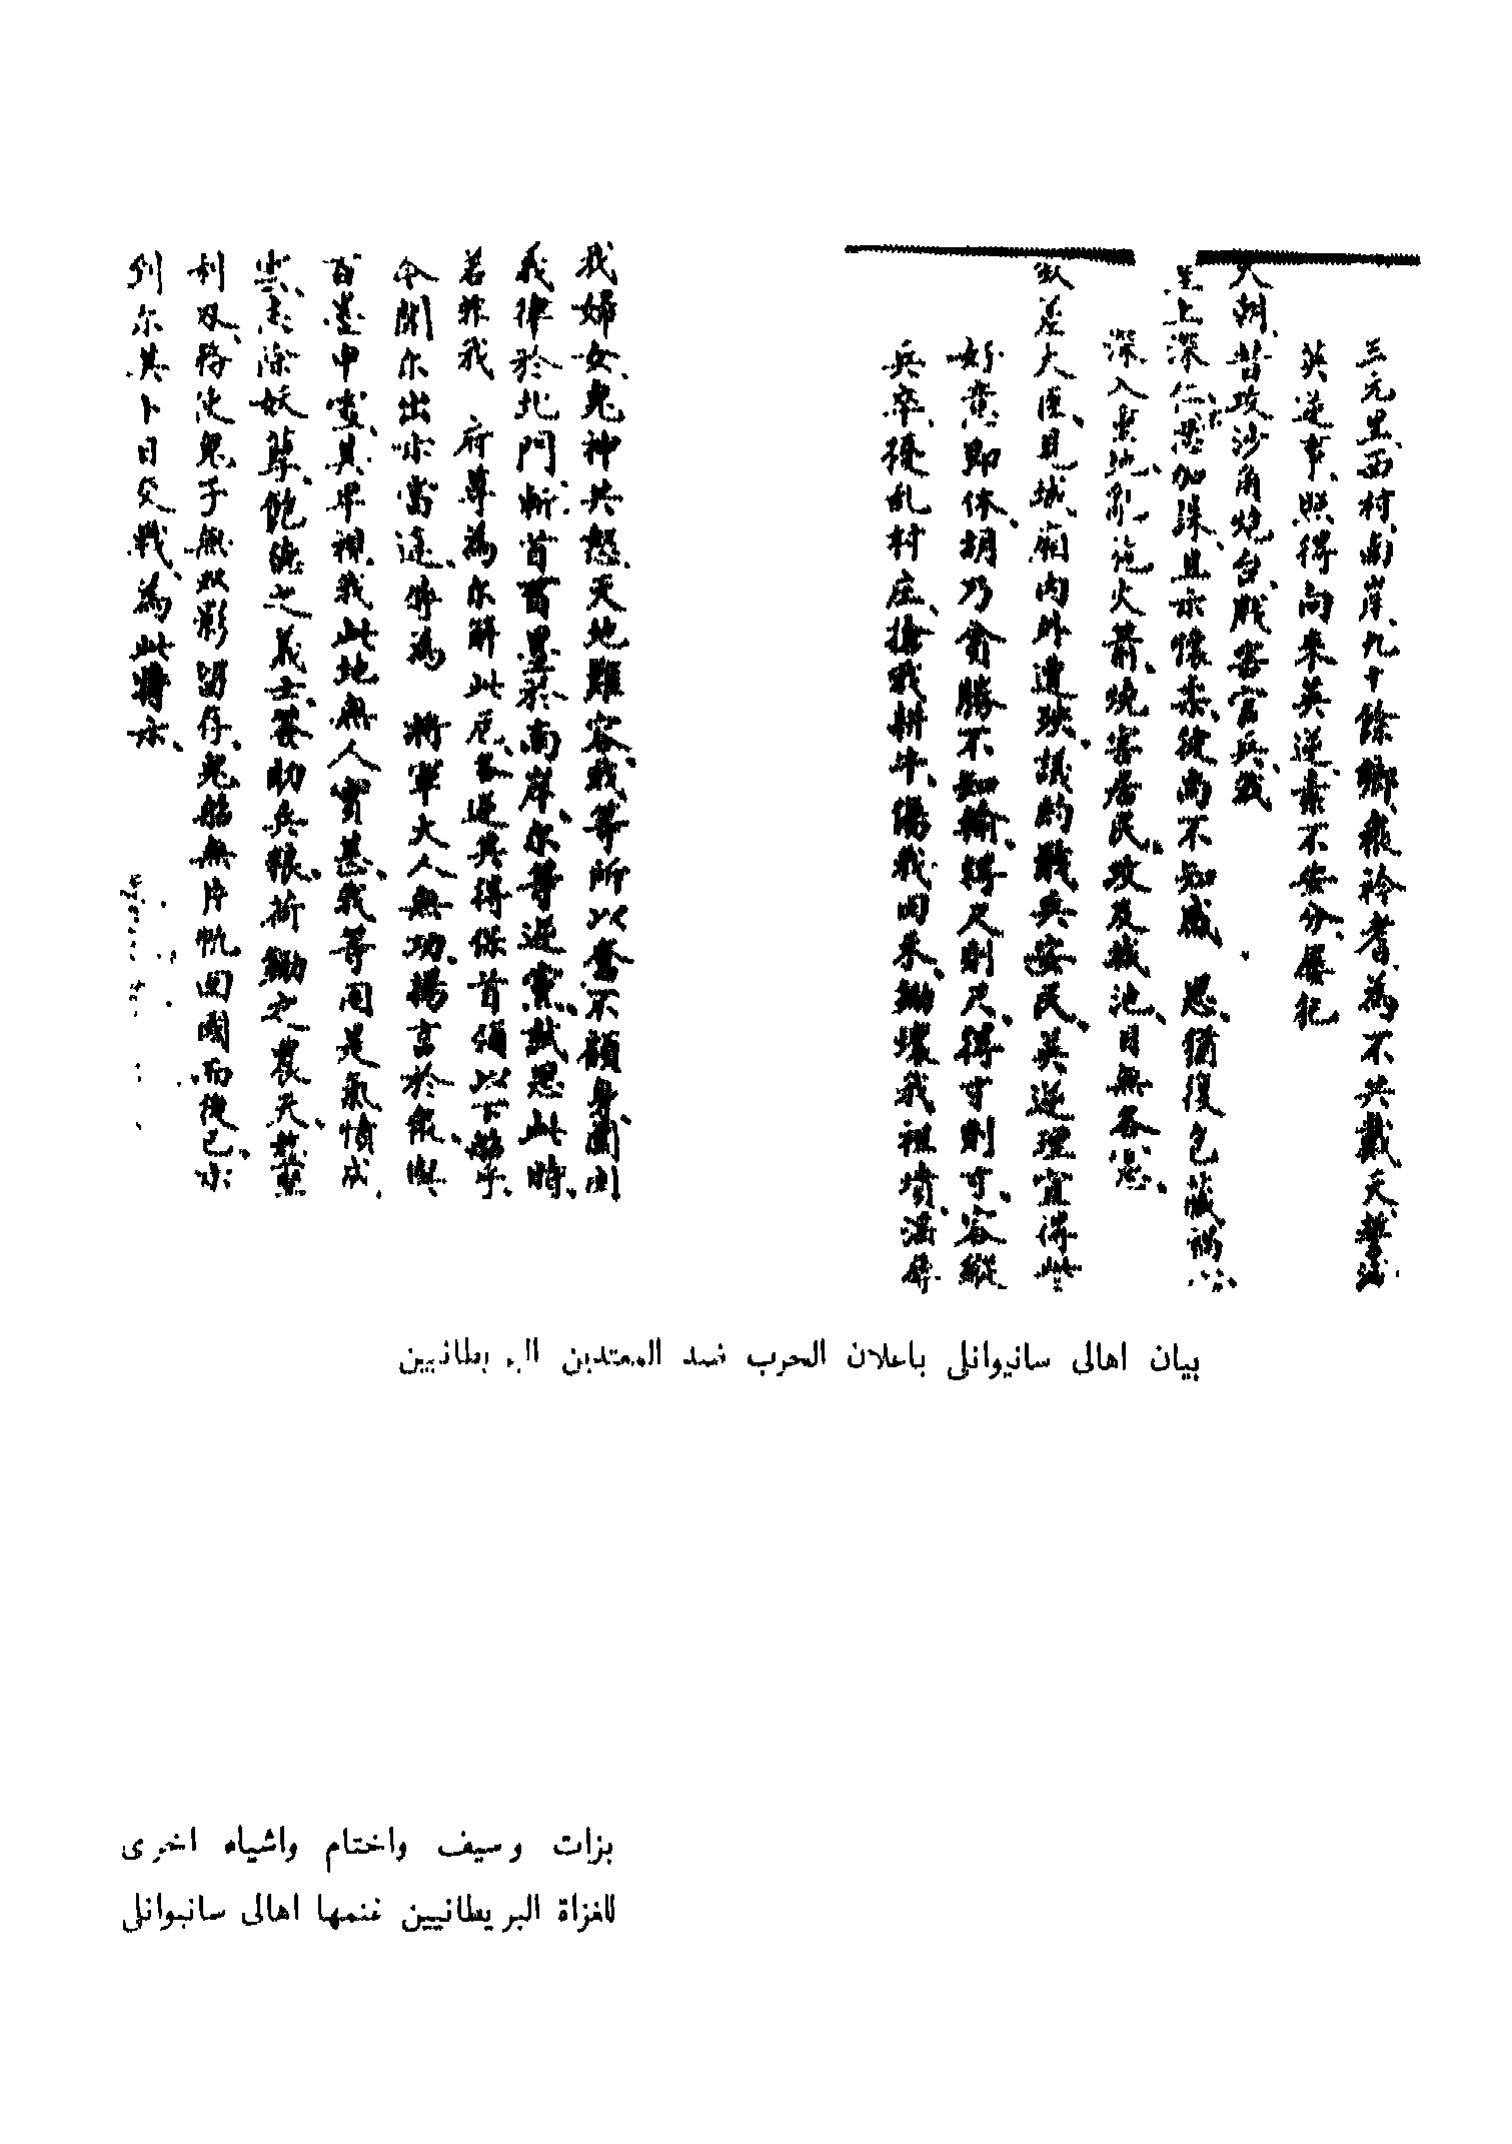 三元里西村南岸九十餘鄉衆衿耆為不共戴天誓滅
英逆事、照得向來英逆素不安分、屢犯
天朝、昔攻沙角炮台、戕害官兵、我
皇上深仁、恩加誅、且示懷柔、彼尚不知感 恩猶復包藏禍心
深入重地、施火箭、燒害居民、攻及城池、目無各憲、
欽差大臣、見城廂内外遭殃、議的戢兵安民、英逆理宜得此
好意、即休、胡乃貪勝不知輸、得尺則尺、得寸則寸、容縱
兵卒、擾乱村庄、搶我耕牛、傷我田禾、鋤壞我祖墳、淫辱
我婦女、鬼神共怒、天地難容、我等所以奮不顧身、圍困
義律於北門、斬首於南岸、尔等逆黨、試思此時、
若非我 府尊為尔解此厄、各逆其得保首領以下船乎、
今聞尔出示當途、傳為 將軍大人無功、揚言於衆、與
百 甲 、其卑視我此地無人實甚、我等用是氣憤成
志除妖孽、飽德之義士、資助兵粮、荷鋤之農夫、
利刃、將使鬼子無 影留存、鬼船無片帆回國而後已、
列尔其卜日交戰、為此特示、
بيان اهالى سانيوانلى باعلان الحرب ضد المعتدين البريطانيين
بزات وسيف واختام واشياء اخرى
للغزاة البريطانيين غنمها اهالى سانيوانلى